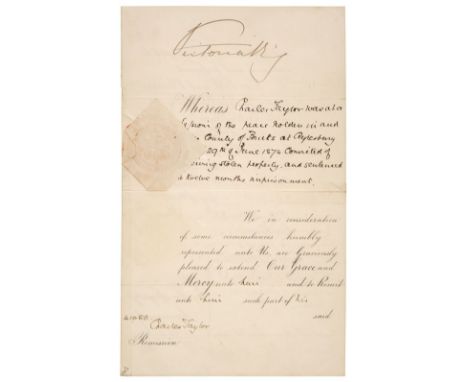 Victoria R
Whereas Charles Taylor was at a
Session of the peace holden in and
County of Bucks at Aylesbury
29th of June 1874 Convicted of
receiving stolen property, and sentenced
twelve months imprisonment.
We in consideration
of some circumstances humbly
represented unto Us, are Graciously
pleased to extend Our Grace and
Mercy unto him and to Remit
unto him such part of his
said
Charles Taylor
Remission